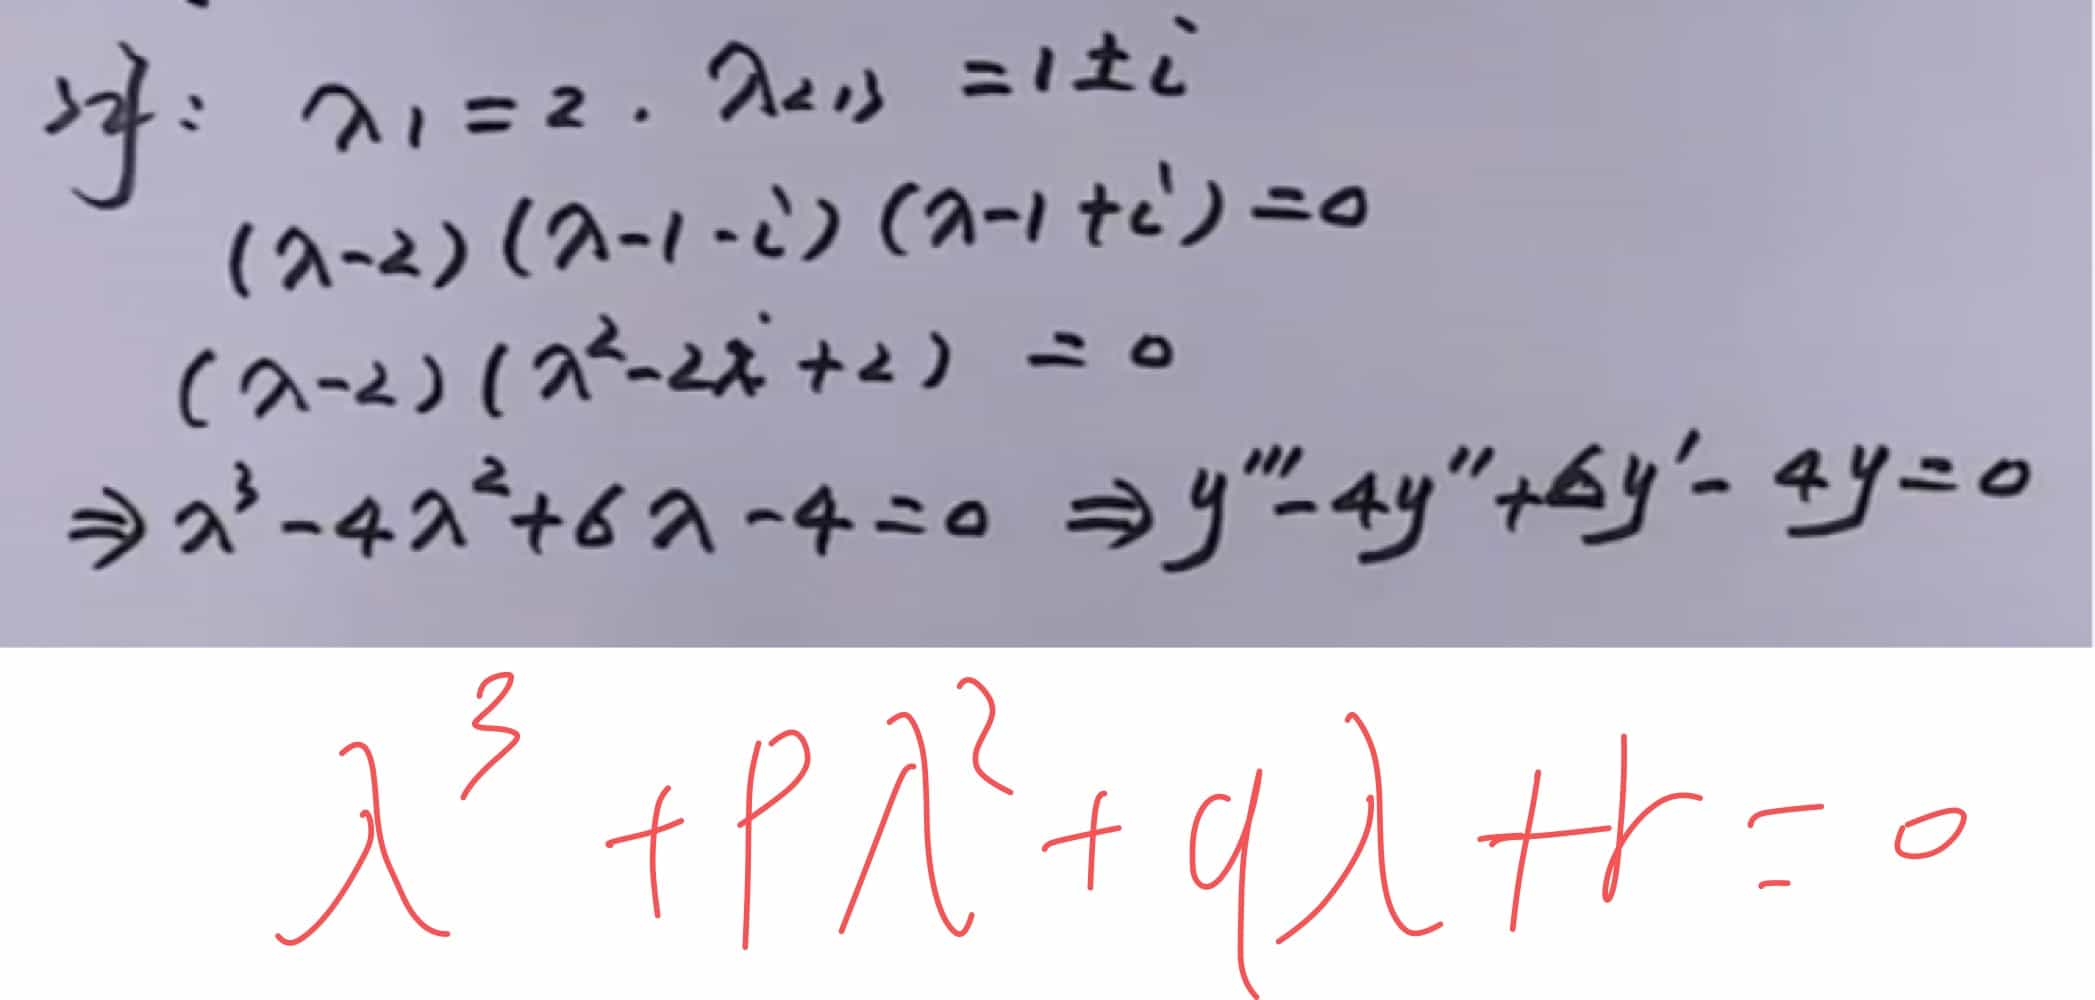 对: λ₁ = 2. λ₂,₃ = 1 ± i
(λ-2)(λ-1-i)(λ-1+i) = 0
(λ-2)(λ²-2λ+2) = 0
⇒ λ³-4λ²+6λ-4=0 ⇒ y'''-4y''+6y'-4y=0
λ³+pλ²+qλ+r=0